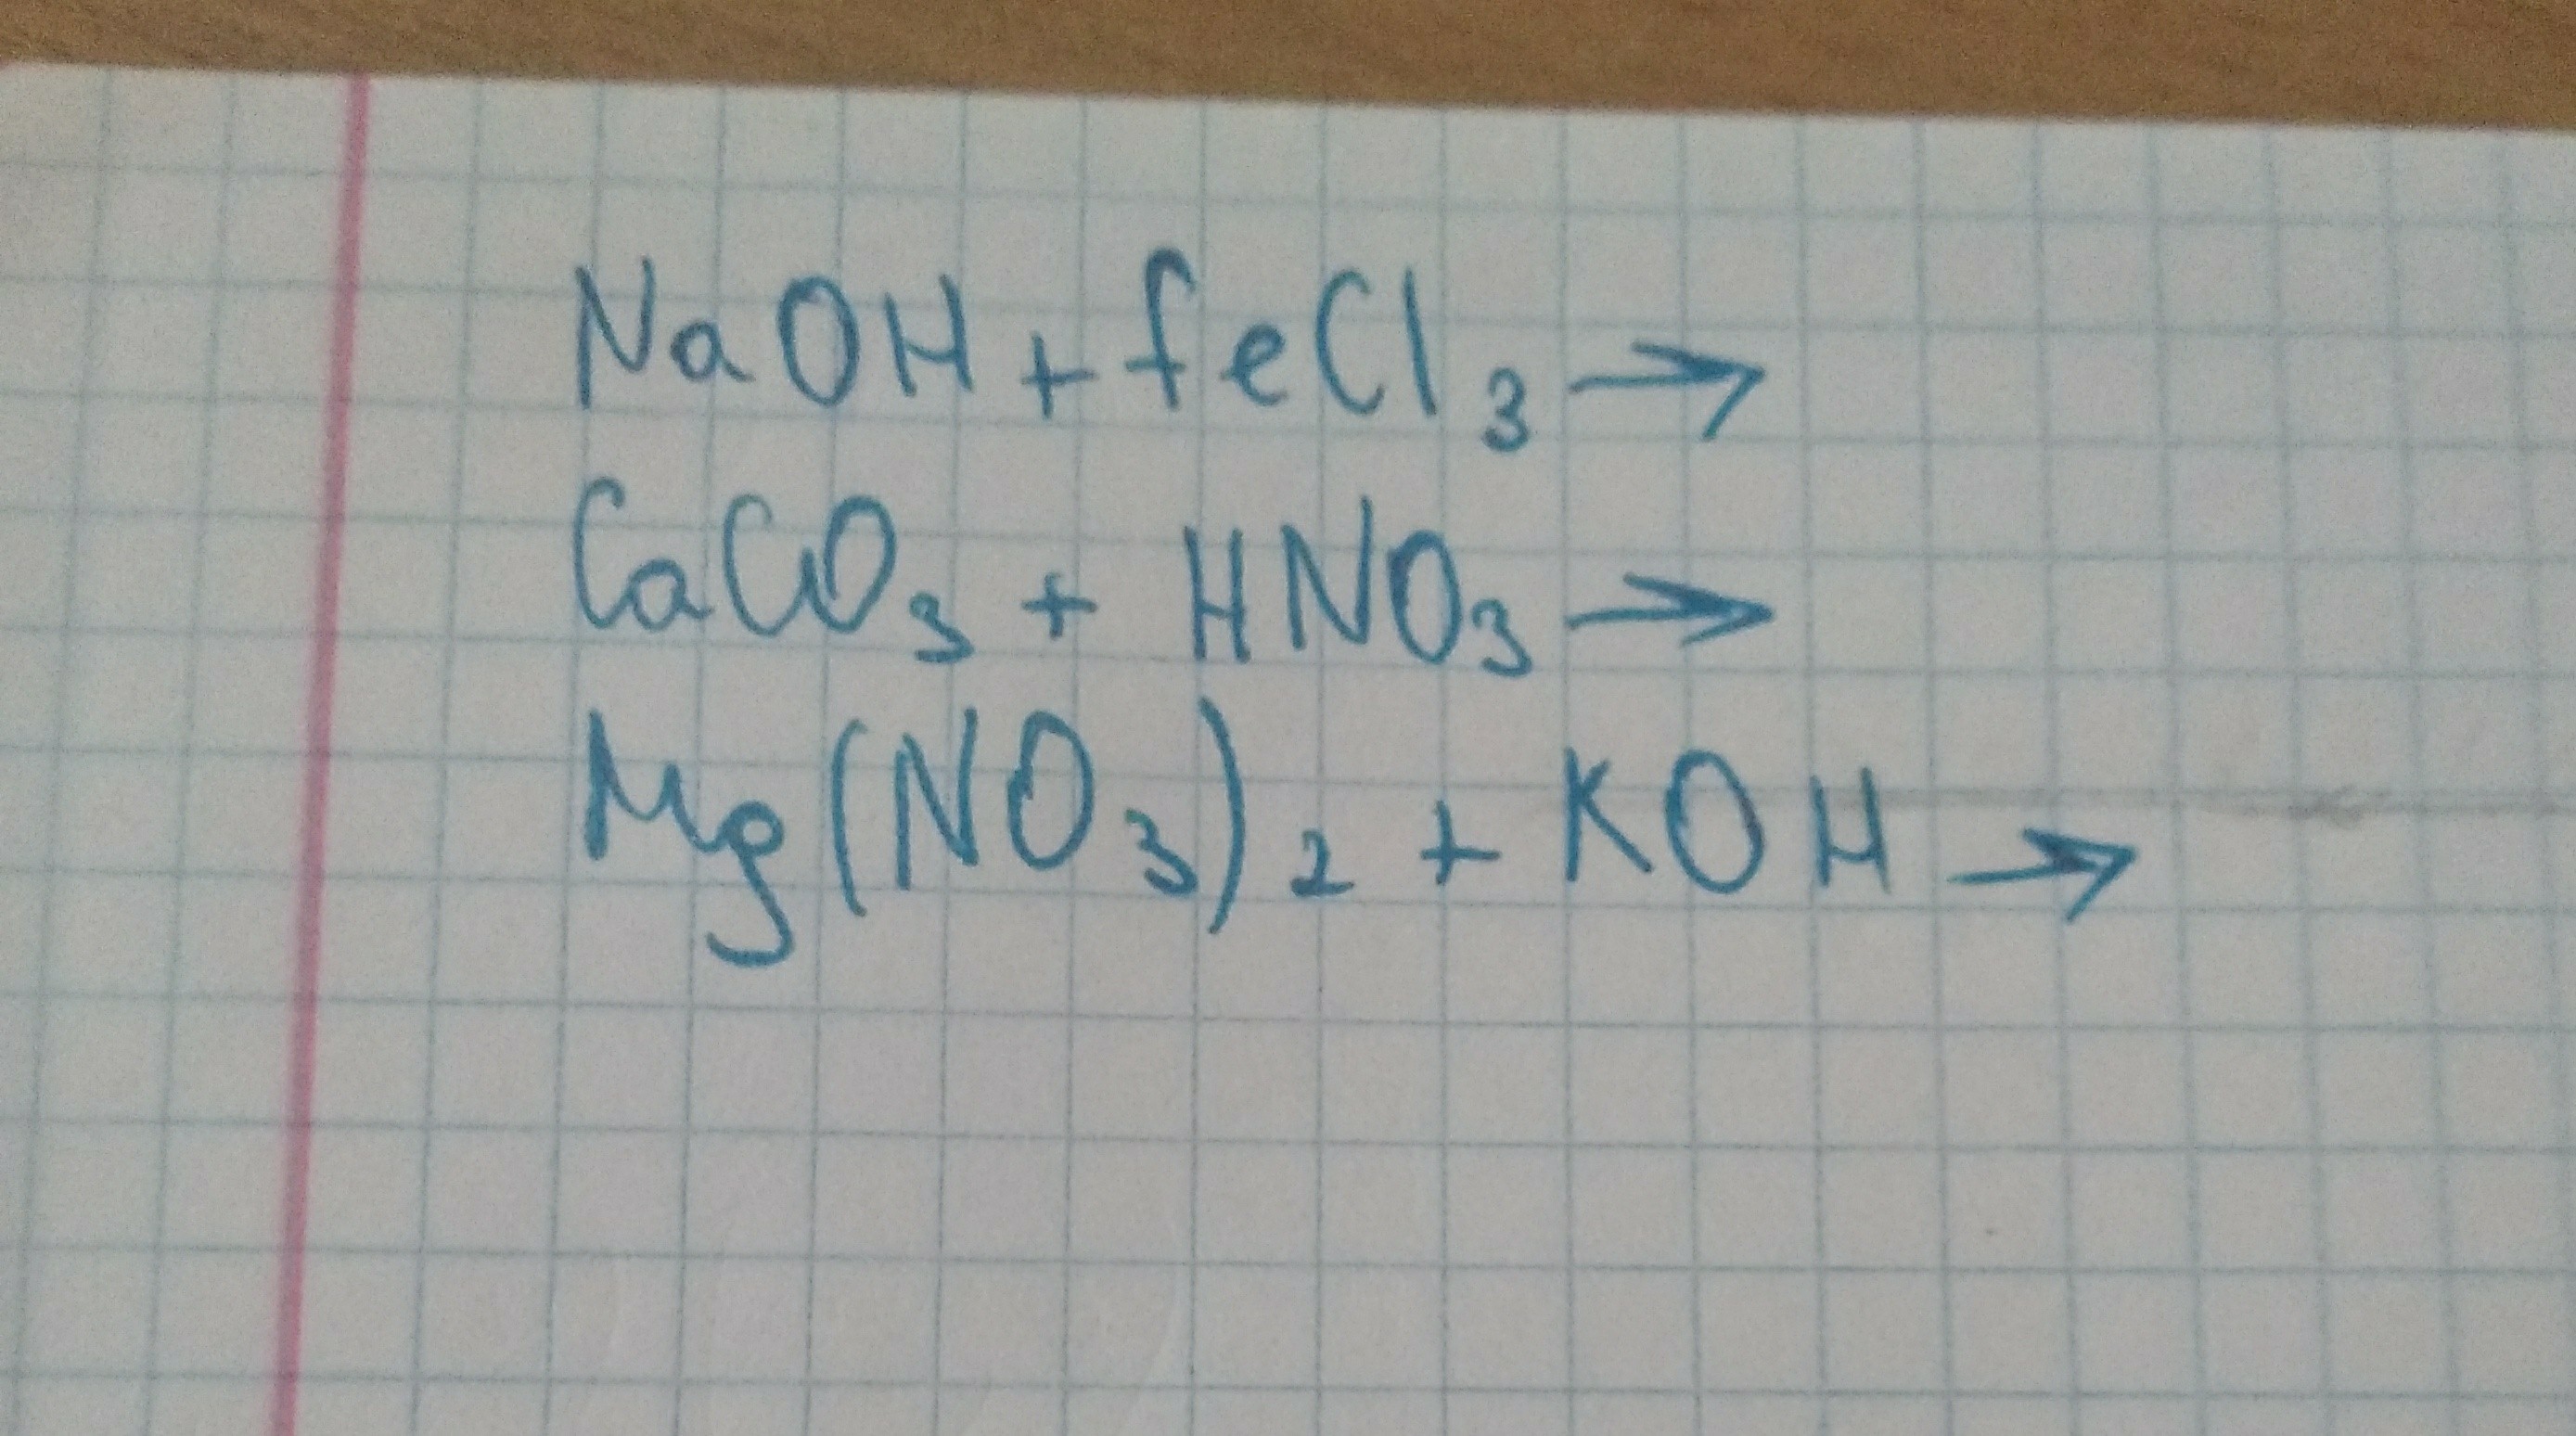 NaOH + feCl₃ →
CaCO₃ + HNO₃ →
Mg(NO₃)₂ + KOH →